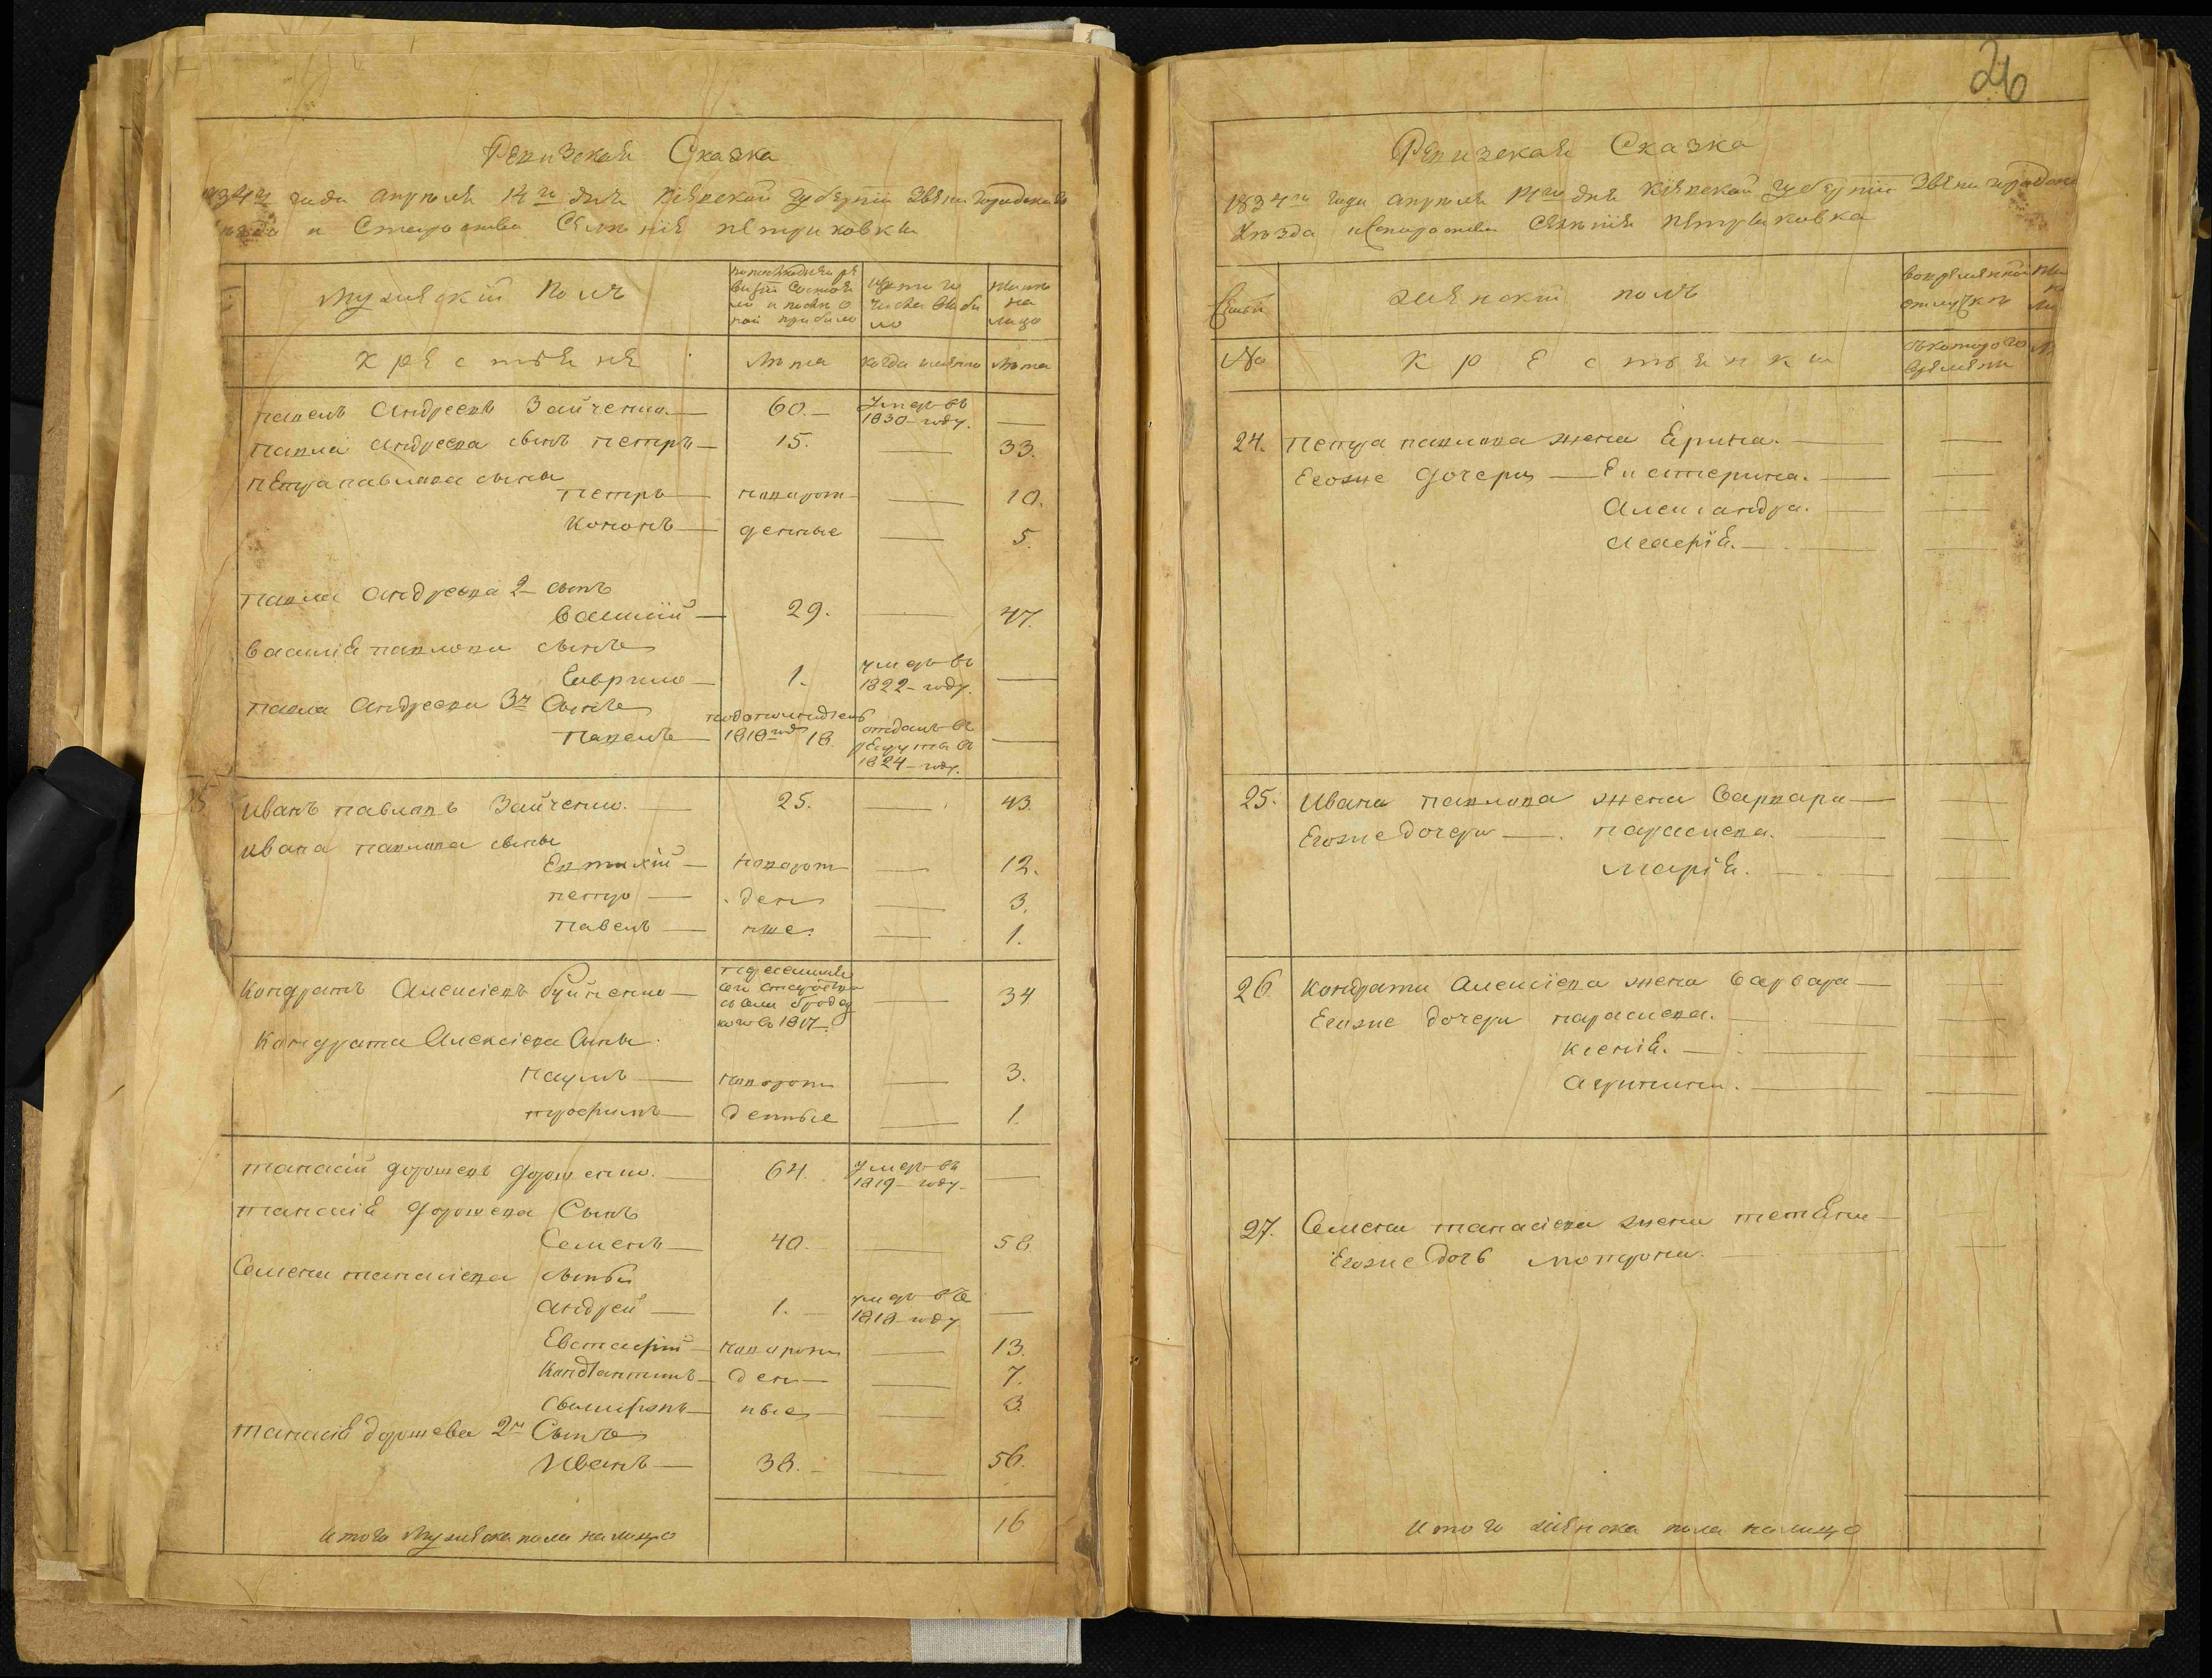 Ревизская Сказка
1834го года апреля 14го дня Кіевской губерніи Звенигородскаго
уезда и Староства Селенія петриковки
мужескій полъ
по последней ре
визіи состоя
ло и после о
ной прибыло
изъ того
числа выбы
ло
ныне
на
лицо
крестьяне
лета
когда именно
лета
павелъ Андреевъ Зайченко. 60. Умеръ въ
1830 году.
павла андреева сынъ петръ 15. 33.
петра павлова сыны
петръ новорож 10.
Кононъ денные 5.
павла андреева 2 сынъ
Василій 29. 47.
Василія павлова сынъ
Гаврило 1. умеръ въ
1822 году.
павла Андреева 3й Сынъ
павелъ 1818 год 18. отданъ въ
рекруты въ
1824 году.
25
Иванъ павловъ Зайченко. 25. 43.
Ивана павлова сыны
Евтихій новорож 12.
петро ден 3.
павелъ ные. 1.
Кондратъ Алексіевъ 34
Кондрата Алексіева Сыны.
наумъ новорож 3.
трофимъ денные 1.
танасій дорошевъ дорошенко. 64. Умеръ въ
1819 году
танасія дорошева Сынъ
Семенъ 40. 58.
Семена танасіева сыны
андрей 1. умеръ въ
1818 году
Евстафій новорож 13.
Константинъ ден 7.
ные 3.
танасія дорошева 2й Сынъ
Иванъ 38. 56.
Итого мужеска пола налицо 16
26
Ревизская Сказка
1834го года апреля 14го дня Кіевской губерніи Звенигородска
Уезда и Староства Селенія петриковка
Семьи
женскій полъ
во временной
отлучке
№
крестьянки
съ котораго
времени
24. петра павлова жена Ерина.
Егоже дочери Екатерина.
Александра.
Агафія.
25. Ивана павлова жена Варвара
Егоже дочери параскева.
Марія.
26 Кондрата Алексіева жена Варвара
Егоже дочери параскева.
Ксенія.
Агрипина.
27. Семена танасіева жена тетяна
Егоже дочь мотрона.
Итого женска пола налицо